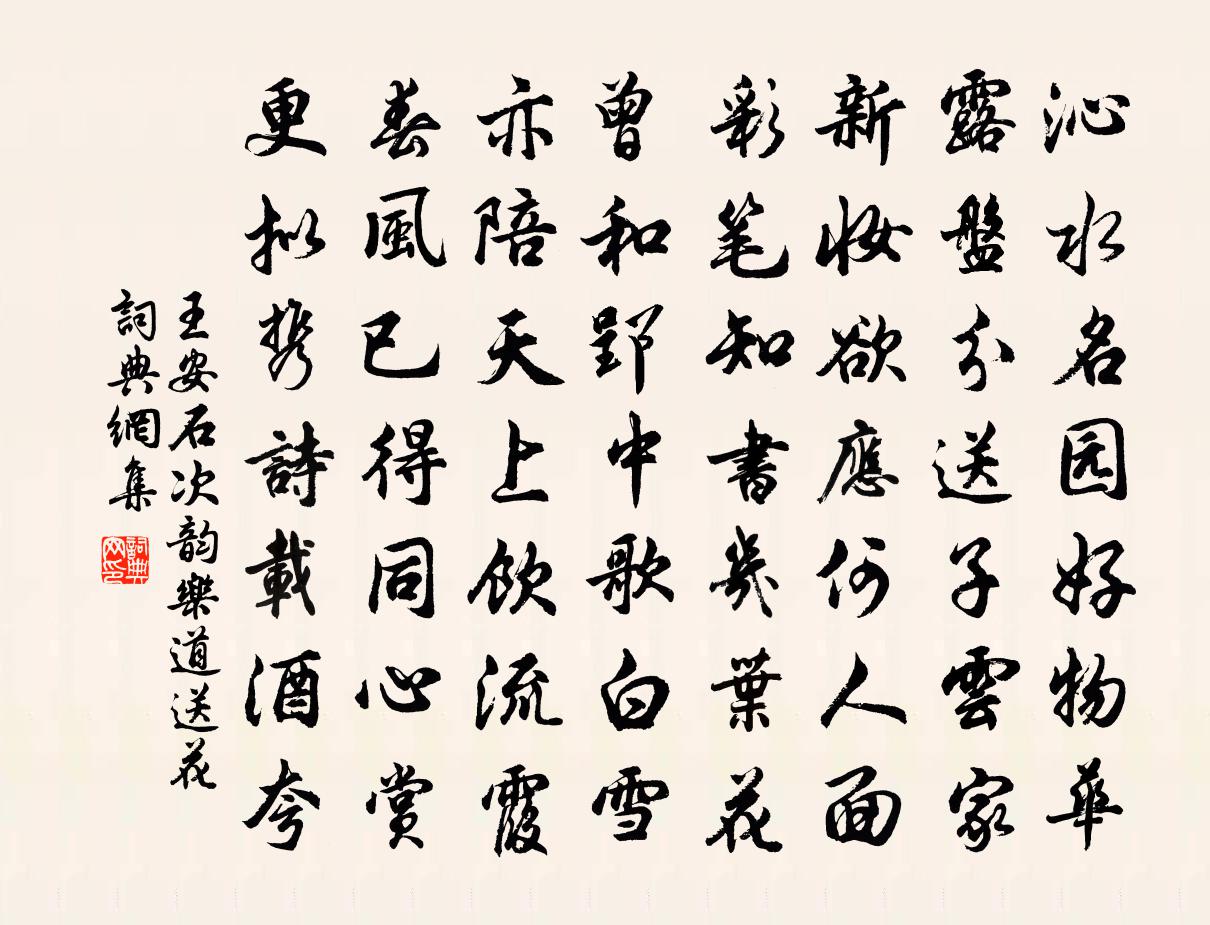 沁水名园好物華
露盤分送子雲家
新妝欲應何人面
彩笔知書幾葉花
曾和郢中歌白雪
亦陪天上飲流霞
春風已得同心賞
更拟携詩載酒夸
王安石次韵樂道送花
詞典網集
詞典网印